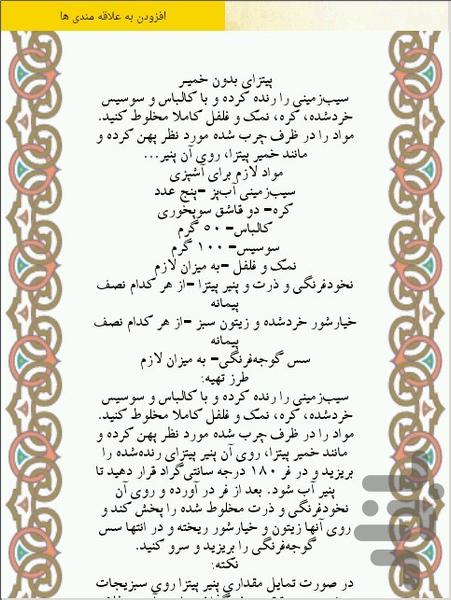 افزودن به علاقه مندی ها
پیتزای بدون خمیر
سیب‌زمینی را رنده کرده و با کالباس و سوسیس
خردشده، کره، نمک و فلفل کاملا مخلوط کنید.
مواد را در ظرف چرب شده مورد نظر پهن کرده و
مانند خمیر پیتزا، روی آن پنیر...
مواد لازم برای آشپزی
سیب‌زمینی آب‌پز -پنج عدد
کره- دو قاشق سوپخوری
کالباس- ۵۰ گرم
سوسیس- ۱۰۰ گرم
نمک و فلفل -به میزان لازم
نخودفرنگی و ذرت و پنیر پیتزا -از هر کدام نصف
پیمانه
خیارشور خردشده و زیتون سبز -از هر کدام نصف
پیمانه
سس گوجه‌فرنگی- به میزان لازم
طرز تهیه:
سیب‌زمینی را رنده کرده و با کالباس و سوسیس
خردشده، کره، نمک و فلفل کاملا مخلوط کنید.
مواد را در ظرف چرب شده مورد نظر پهن کرده و
مانند خمیر پیتزا، روی آن پنیر پیتزای رنده‌شده را
بریزید و در فر ۱۸۰ درجه سانتی‌گراد قرار دهید تا
پنیر آب شود. بعد از فر در آورده و روی آن
نخودفرنگی و ذرت مخلوط شده را پخش کند و
روی آنها زیتون و خیارشور ریخته و در انتها سس
گوجه‌فرنگی را بریزید و سرو کنید.
نکته:
در صورت تمایل مقداری پنیر پیتزا روی سبزیجات
بازار